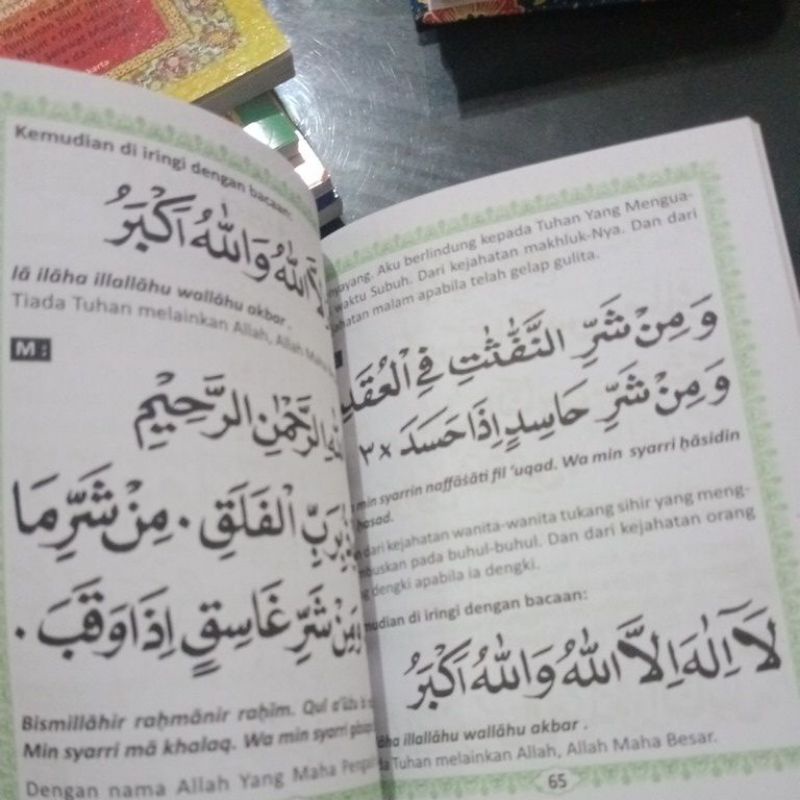 Kemudian di iringi dengan bacaan:
اللهُ وَاللهُ اَكْبَرُ
lā ilāha illallāhu wallāhu akbar.
Tiada Tuhan melainkan Allah, Allah Maha
M :
الرَّحْمٰنِ الرَّحِيْمِ
بِرَبِّ الْفَلَقِ . مِنْ شَرِّ مَا
وَمِنْ شَرِّ غَاسِقٍ اِذَا وَقَبَ .
Bismillāhir raḥmānir raḥīm. Qul a'ūżu
Min syarri mā khalaq. Wa min syarri
Dengan nama Allah Yang Maha
Aku berlindung kepada Tuhan Yang Mengua-
waktu Subuh. Dari kejahatan makhluk-Nya. Dan dari
malam apabila telah gelap gulita.
وَمِنْ شَرِّ النَّفّٰثٰتِ فِى الْعُقَدِ
وَمِنْ شَرِّ حَاسِدٍ اِذَا حَسَدَ ×٣
min syarrin naffāṡāti fil 'uqad. Wa min syarri ḥāsidin
ḥasad.
dari kejahatan wanita-wanita tukang sihir yang meng-
pada buhul-buhul. Dan dari kejahatan orang
dengki apabila ia dengki.
di iringi dengan bacaan:
لَآ اِلٰهَ اِلَّا اللهُ وَاللهُ اَكْبَرُ
illallāhu wallāhu akbar .
Tuhan melainkan Allah, Allah Maha Besar.
65